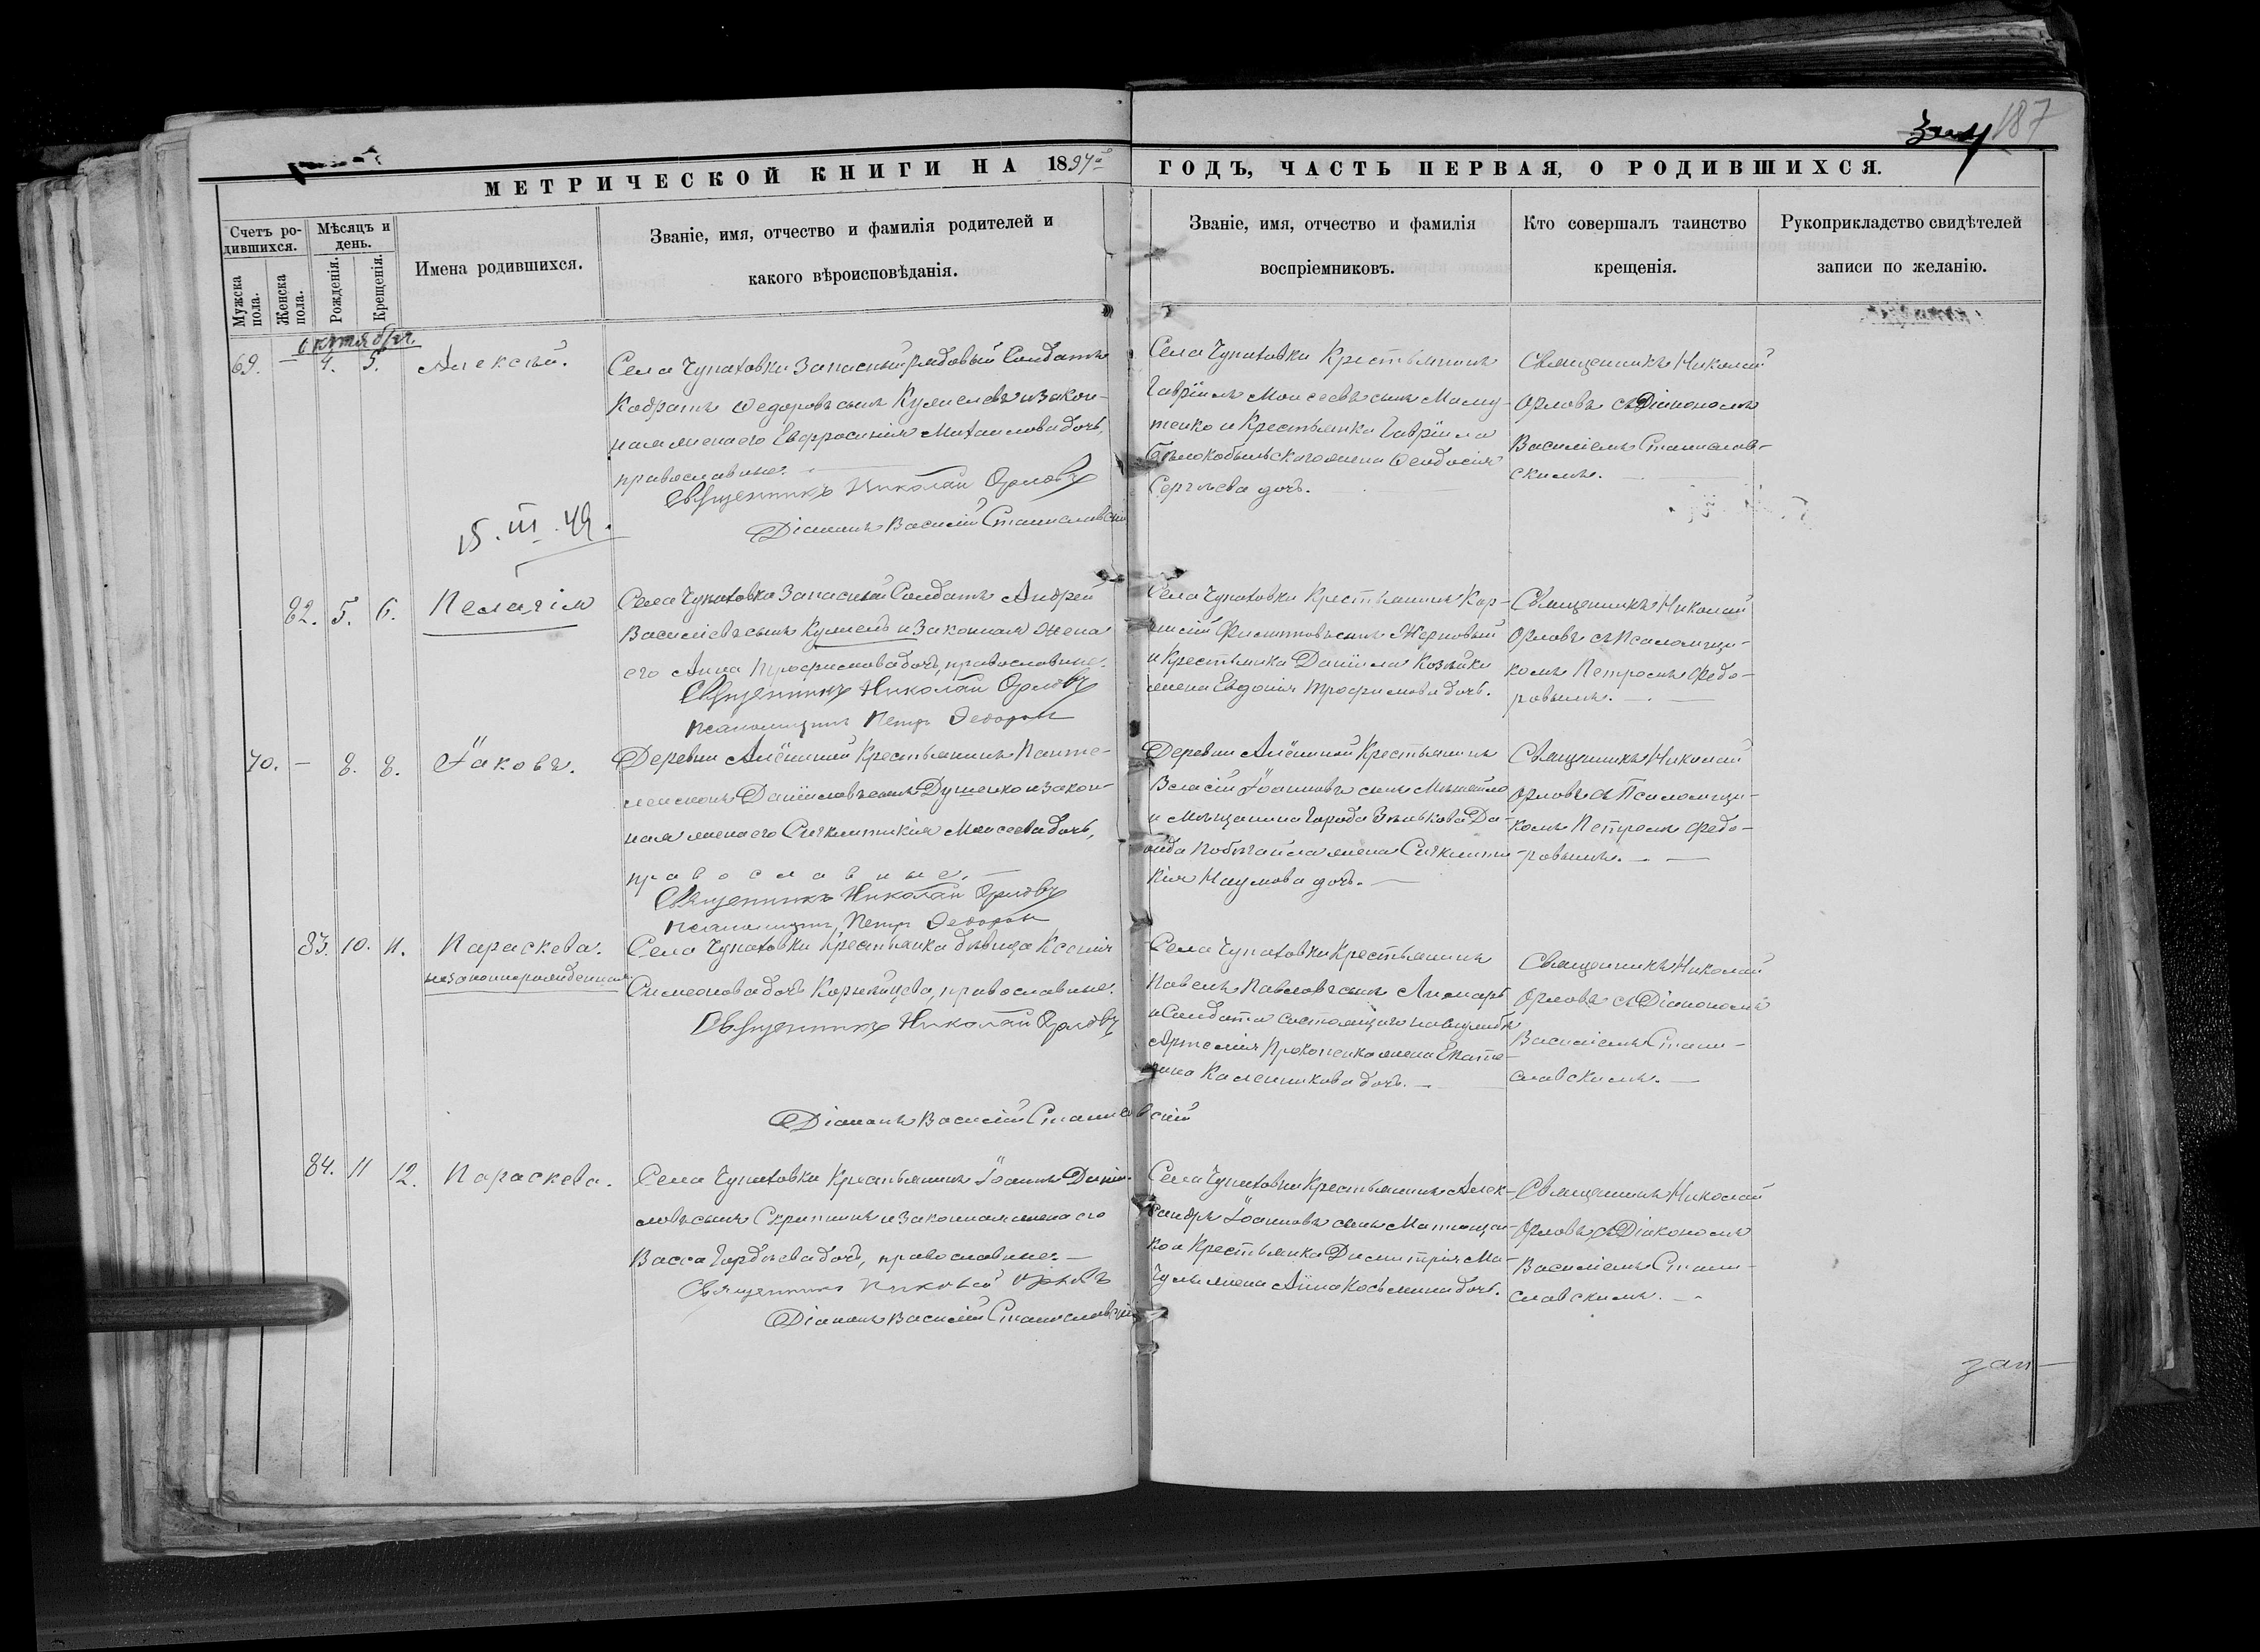 187
МЕТРИЧЕСКОЙ КНИГИ НА 1894й
ГОДЪ, ЧАСТЬ ПЕРВАЯ, О РОДИВШИХСЯ.
Счетъ ро-
дившихся.
Мужска
пола.
Женска
пола.
Мѣсяцъ и
день.
Рожденія.
Крещенія.
Имена родившихся.
Званіе, имя, отчество и фамилія родителей и
какого вѣроисповѣданія.
Званіе, имя, отчество и фамилія
воспріемниковъ.
Кто совершалъ таинство
крещенія.
Рукоприкладство свидѣтелей
записи по желанію.
октября
69. — 4. 5. Алексѣй.
Села Чупаховки Запасный рядовый Солдатъ
Кодратъ Ѳедоровъ сынъ Кулиевъ и закон-
ная жена его Евфросинія Михаилова дочь,
православные.
Священникъ Николай Орловъ
Діаконъ Василій Станиславскій
Села Чупаховки Крестьянинъ
Гавріилъ Моисеевъ сынъ Маму-
тенко и Крестьянка Гавріила
Бѣлокобыльского жена Ѳеодосія
Сергѣева дочь.
Священникъ Николай
Орловъ съ Діакономъ
Василіемъ Станислав-
скимъ.
15.III.49.
82. 5. 6. Пелагія
Села Чупаховки Запасный Солдатъ Андрей
Василіевъ сынъ Кулиевъ и законная жена
его Анна Трофимова дочь, православные.
Священникъ Николай Орловъ
Псаломщикъ Петръ Федоровъ
Села Чупаховки Крестьянинъ Кор-
нилій Филипповъ сынъ Жерновый
и Крестьянка Даніила Козѣйки
жена Евдокія Трофимова дочь.
Священникъ Николай
Орловъ съ Псаломщи-
комъ Петромъ Федо-
ровымъ.
70. — 8. 8. Іаковъ.
Деревни Алёшиной Крестьянинъ Панте-
леимонъ Даніиловъ сынъ Душенко и закон-
ная жена его Сигклитикія Моисеева дочь,
православные.
Священникъ Николай Орловъ
Псаломщикъ Петръ Федоровъ
Деревни Алёшиной Крестьянинъ
Власій Іоанновъ сынъ
и мѣщанина города Зѣнькова Да-
вида жена Сигклити-
кія Наумова дочь.
Священникъ Николай
Орловъ съ Псаломщи-
комъ Петромъ Федо-
ровымъ.
83. 10. 11. Параскева.
незаконнорожденная
Села Чупаховки Крестьянка дѣвица Ксенія
Симеонова дочь Корнѣйцева, православные.
Священникъ Николай Орловъ
Діаконъ Василій Станиславскій
Села Чупаховки Крестьянинъ
Павелъ Павловъ сынъ Лимарь
и Солдата состоящаго на службѣ
Артемія Прокопенко жена Екате-
рина Каленикова дочь.
Священникъ Николай
Орловъ съ Діакономъ
Василіемъ Стани-
славскимъ.
84. 11 12. Параскева.
Села Чупаховки Крестьянинъ Іоаннъ Даніи-
ловъ сынъ Скрипникъ и законная жена его
Васса Гордѣева дочь, православные.
Священникъ Николай Орловъ
Діаконъ Василій Станиславскій
Села Чупаховки Крестьянинъ Алек-
сандръ Іоанновъ сынъ
ко и Крестьянка Димитрія Ма-
жена Анна Косьмина дочь.
Священникъ Николай
Орловъ съ Діакономъ
Василіемъ Стани-
славскимъ.